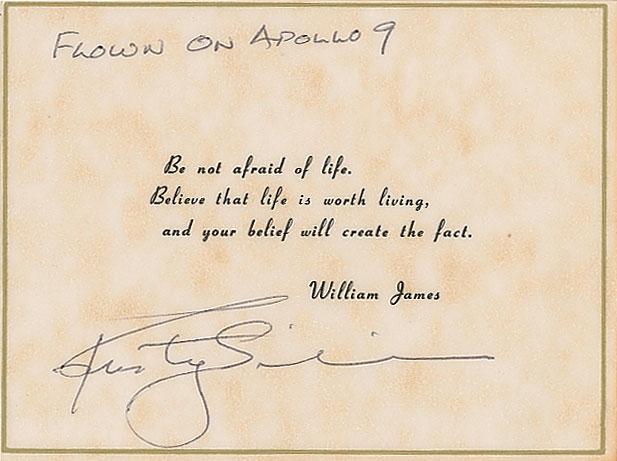 FLOWN ON APOLLO 9
Be not afraid of life.
Believe that life is worth living,
and your belief will create the fact.
William James